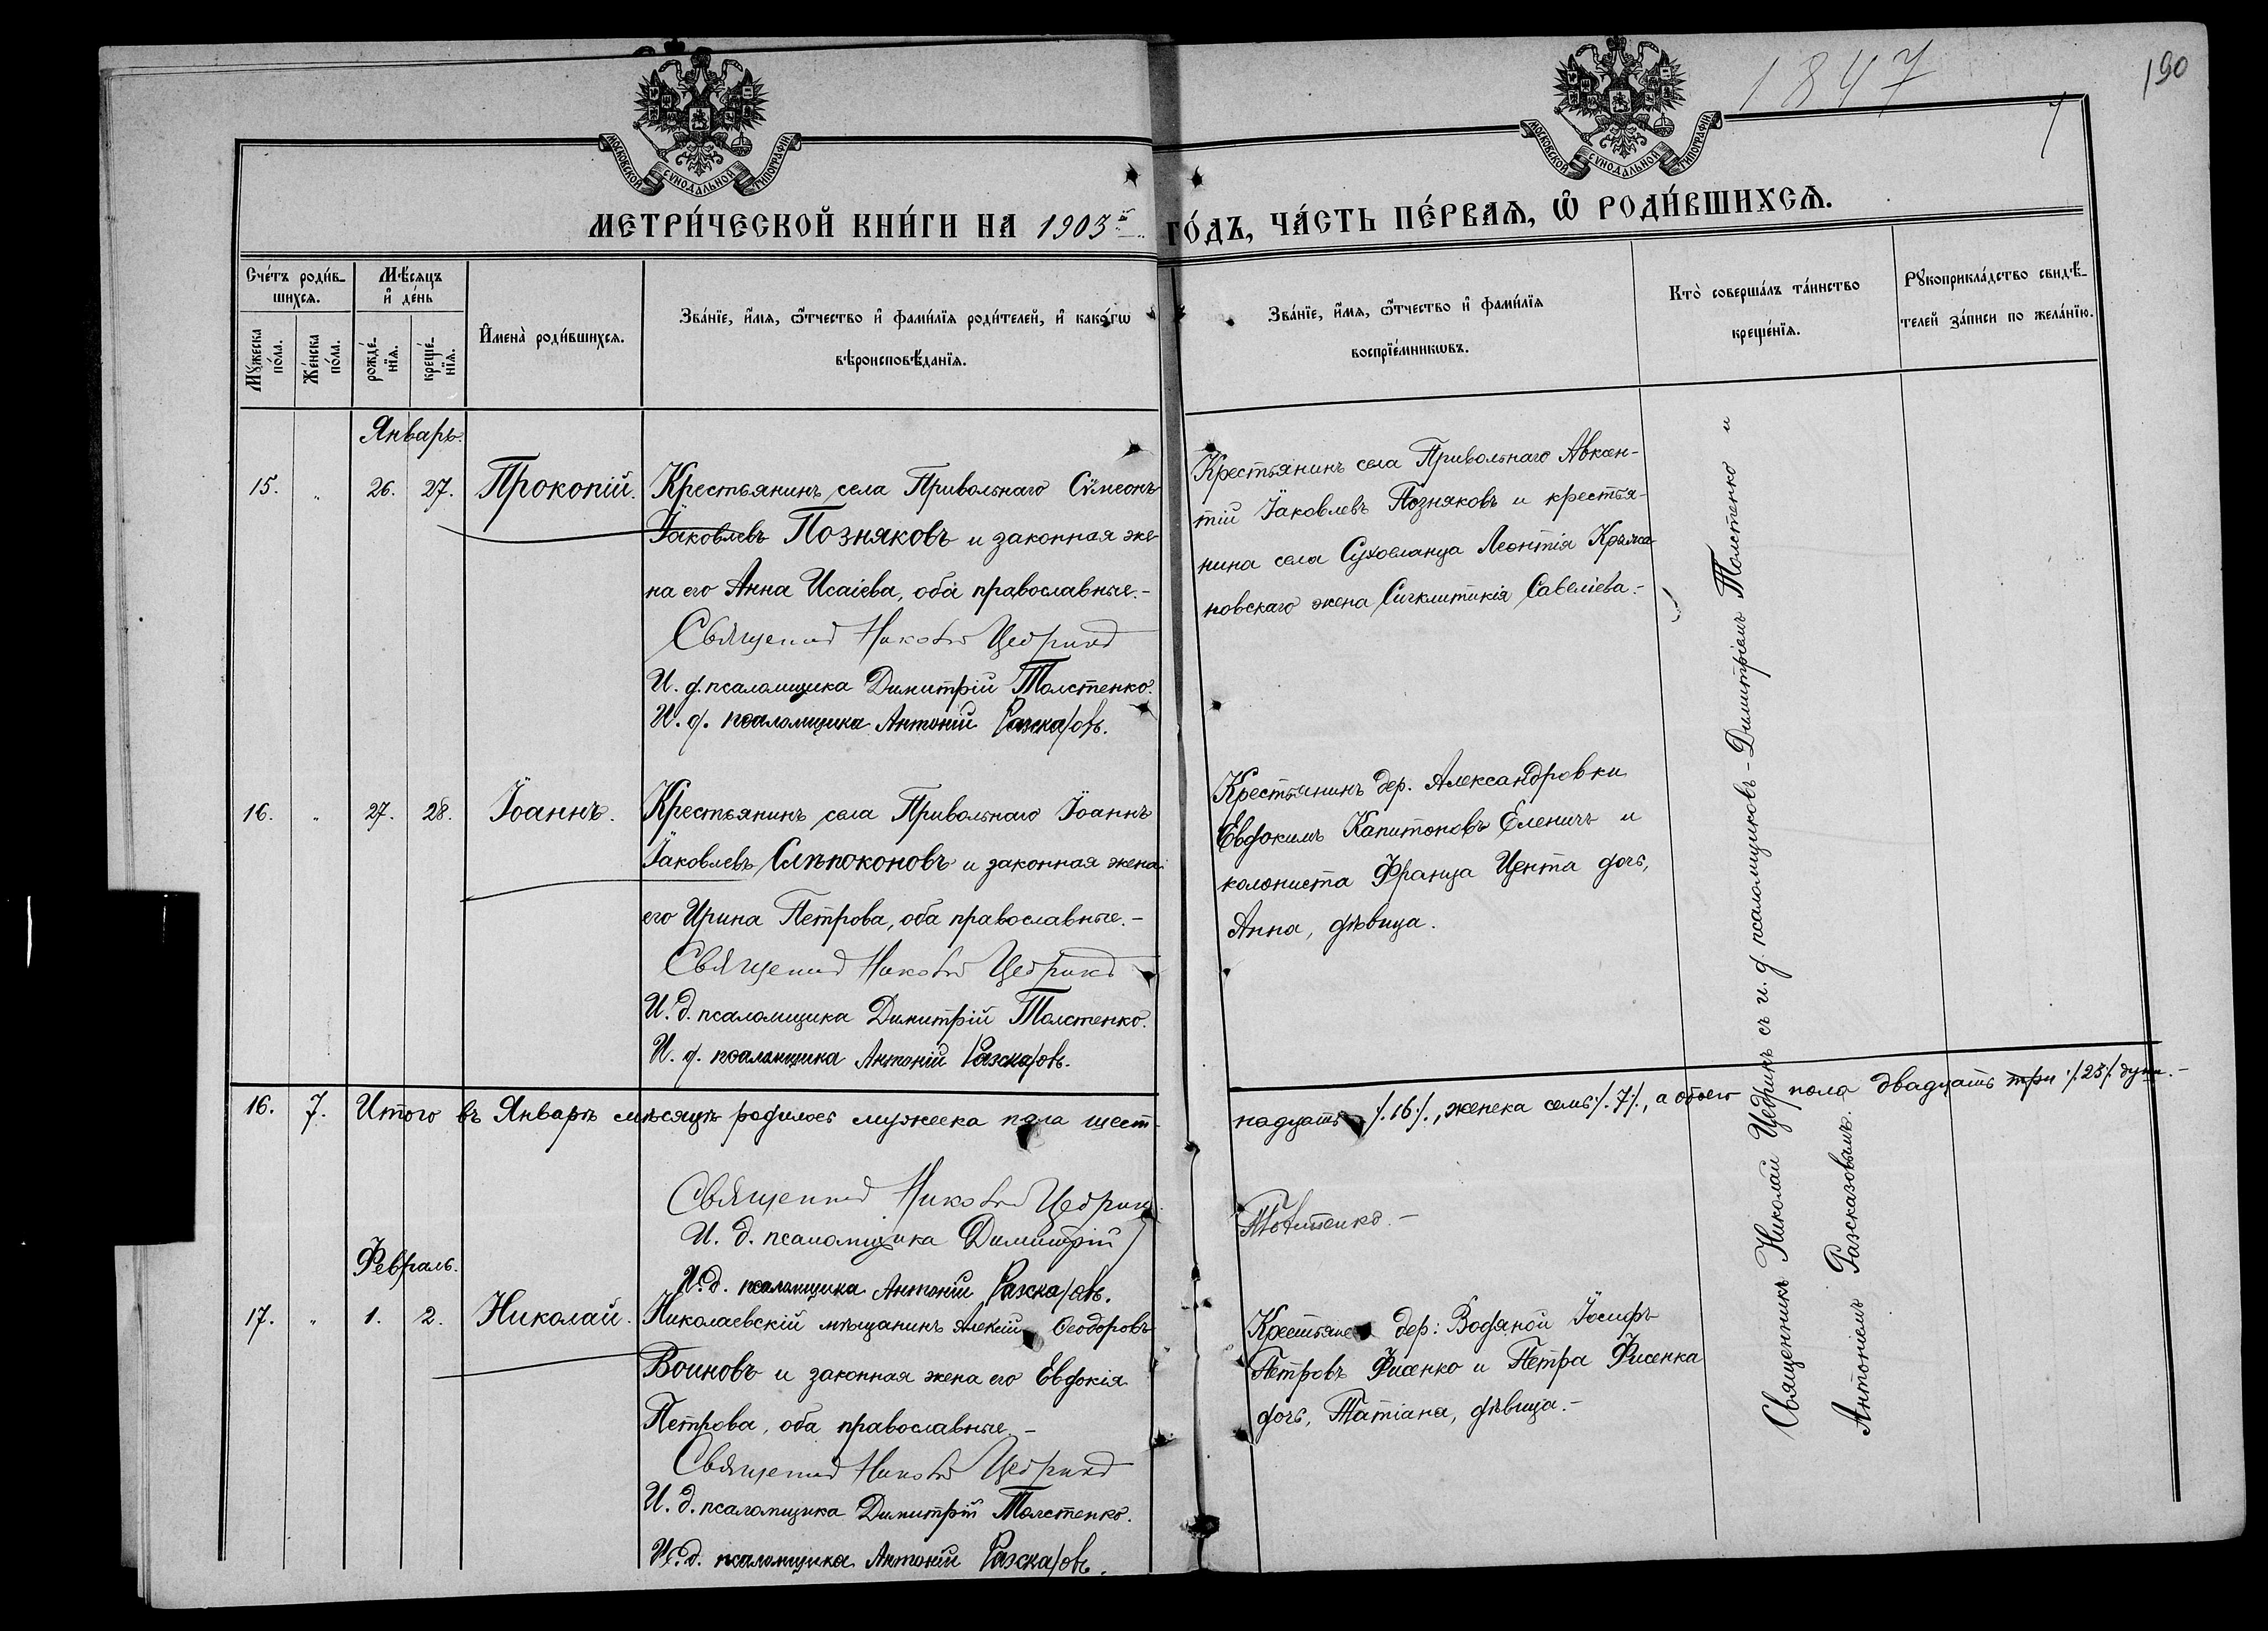 1847
190
7
МОСКОВСКОЙ СѴНОДАЛЬНОЙ ТИПОГРАФІИ
МОСКОВСКОЙ СѴНОДАЛЬНОЙ ТИПОГРАФІИ
МЕТРИ́ЧЕСКОЙ КНИ́ГИ НА 1903й ГО́ДЪ, ЧА́СТЬ ПЕ́РВАѦ, Ѽ РОДИ́ВШИХСѦ.
Сче́тъ роди́в-
шихсѧ.
Мꙋжеска по́ла.
Же́нска по́ла.
Мѣ́сѧцъ и҆ де́нь
рожде́-
нїѧ.
креще́-
нїѧ.
И҆мена̀ роди́вшихсѧ.
Зва́нїе, и҆́мѧ, ѻ҆́тчество и҆ фами́лїѧ роди́телей, и҆ како́гѡ
вѣроисповѣ́данїѧ.
Зва́нїе, и҆́мѧ, ѻ҆́тчество и҆ фами́лїѧ
воспрїе́мникѡвъ.
Кто̀ соверша́лъ та́инство
креще́нїѧ.
Рꙋкоприкла́дство свидѣ́-
телей за́писи по жела́нїю.
Январь.
15. „ 26. 27. Прокопій. Крестьянинъ села Привольнаго Сѵмеонъ
Іаковлевъ Позняковъ и законная же-
на его Анна Исаіева, оба православные.-
Священникъ Николай Цедринъ
И. д. псаломщика Димитрій Толстенко.
И. д. псаломщика Антоній Разсказовъ.
Крестьянинъ села Привольнаго Авксен-
тій Іаковлевъ Позняковъ и крестья-
нина села Сухоеланца Леонтія Крыжа-
новскаго жена Сигклитикія Савеліева.-
16. „ 27. 28. Іоаннъ. Крестьянинъ села Привольнаго Іоаннъ
Іаковлевъ Слѣпоконовъ и законная жена
его Ирина Петрова, оба православные.-
Священникъ Николай Цедринъ
И. д. псаломщика Димитрій Толстенко.
И. д. псаломщика Антоній Разсказовъ.
Крестьянинъ дер. Александровки
Евдокимъ Капитоновъ Еленичъ и
колониста Франца Цента дочь,
Анна, дѣвица.
16. 7. Итого въ Январѣ мѣсяцѣ родилось мужеска пола шест-
надцать /.16./, женска семь /.7./, а обоего пола двадцать три /.23./ души.-
Священникъ Николай Цедринъ
И. д. псаломщика Димитрій
Толстенко.-
И. д. псаломщика Антоній Разсказовъ.
Февраль.
17. „ 1. 2. Николай. Николаевскій мѣщанинъ Алексій Ѳеодоровъ
Воиновъ и законная жена его Евдокія
Петрова, оба православные.-
Священникъ Николай Цедринъ
И. д. псаломщика Димитрій Толстенко.
И. д. псаломщика Антоній Разсказовъ.
Крестьяне дер: Водяной Іосифъ
Петровъ Фисенко и Петра Фисенка
дочь, Татіана, дѣвица.-
Священникъ Николай Цедринъ съ и. д. псаломщиковъ - Димитріемъ Толстенко и
Антоніемъ Разсказовымъ.